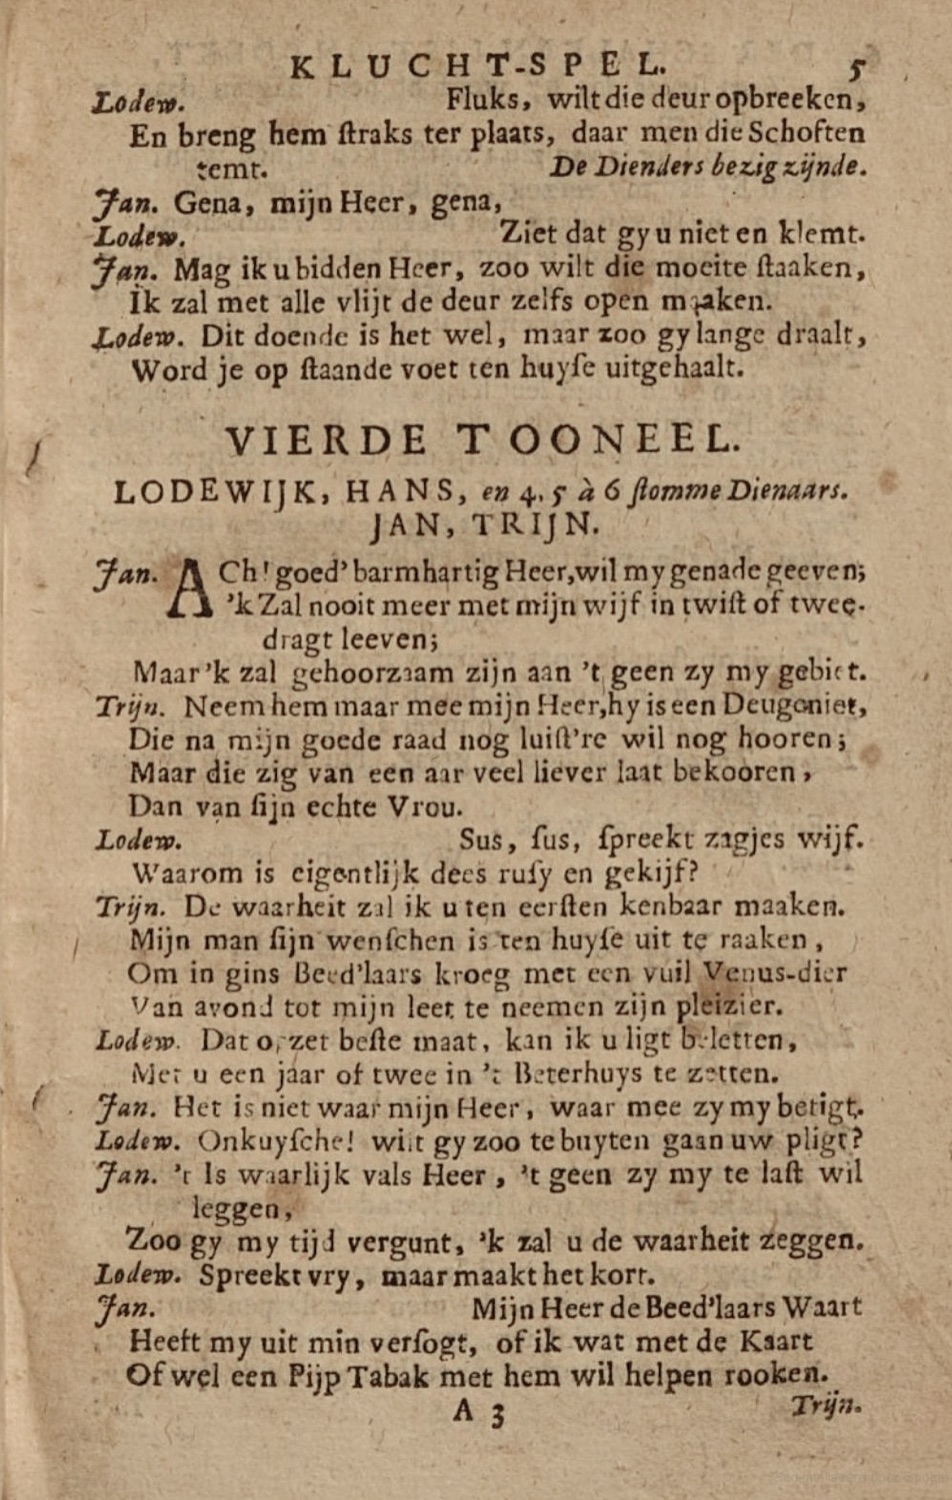 KLUCHT-SPEL. 5
Lodew. Fluks, wilt die deur opbreeken,
En breng hem ſtraks ter plaats, daar men die Schoften
temt. De Dienders bezig zijnde.
Jan. Gena, mijn Heer, gena,
Lodew. Ziet dat gy u niet en klemt.
Jan. Mag ik u bidden Heer, zoo wilt die moeite ſtaaken,
Ik zal met alle vlijt de deur zelfs open maaken.
Lodew. Dit doende is het wel, maar zoo gy lange draalt,
Word je op ſtaande voet ten huyſe uitgehaalt.
VIERDE TOONEEL.
LODEWIJK, HANS, en 4, 5 à 6 ſtomme Dienaars.
JAN, TRIJN.
Jan. ACh! goed' barmhartig Heer, wil my genade geeven;
'k Zal nooit meer met mijn wijf in twiſt of twee-
dragt leeven;
Maar 'k zal gehoorzaam zijn aan 't geen zy my gebiet.
Trijn. Neem hem maar mee mijn Heer, hy is een Deugoniet,
Die na mijn goede raad nog luiſt're wil nog hooren;
Maar die zig van een aar veel liever laat bekooren,
Dan van ſijn echte Vrou.
Lodew. Sus, ſus, ſpreekt zagjes wijf.
Waarom is eigentlijk dees ruſy en gekijf?
Trijn. De waarheit zal ik u ten eerſten kenbaar maaken.
Mijn man ſijn wenſchen is ten huyſe uit te raaken,
Om in gins Beed'laars kroeg met een vuil Venus-dier
Van avond tot mijn leet te neemen zijn pleizier.
Lodew. Dat opzet beſte maat, kan ik u ligt beletten,
Met u een jaar of twee in 't Beterhuys te zetten.
Jan. Het is niet waar mijn Heer, waar mee zy my betigt.
Lodew. Onkuyſche! wilt gy zoo te buyten gaan uw pligt?
Jan. 't Is waarlijk vals Heer, 't geen zy my te laſt wil
leggen,
Zoo gy my tijd vergunt, 'k zal u de waarheit zeggen.
Lodew. Spreekt vry, maar maakt het kort.
Jan. Mijn Heer de Beed'laars Waart
Heeft my uit min verſogt, of ik wat met de Kaart
Of wel een Pijp Tabak met hem wil helpen rooken.
A 3 Trijn.